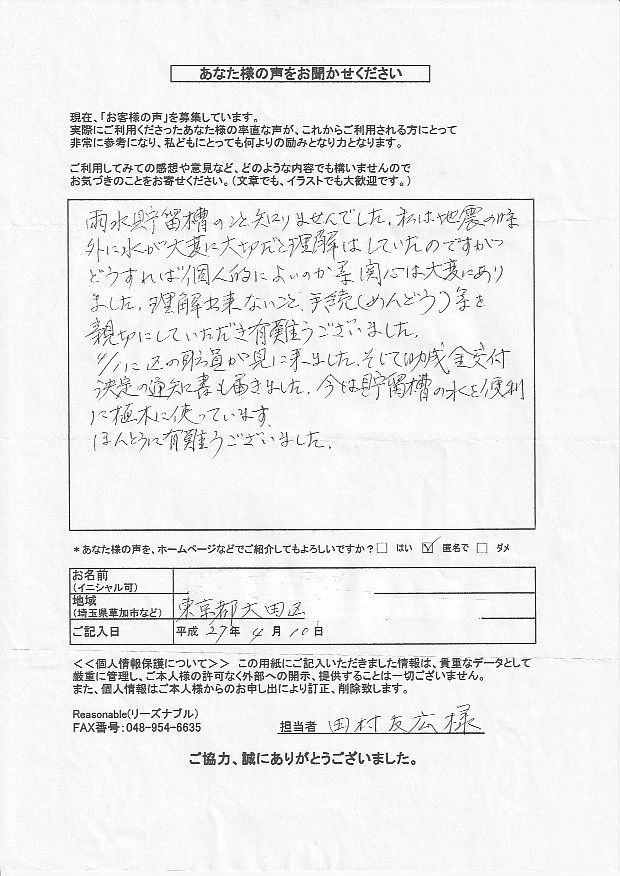 あなた様の声をお聞かせください
現在、「お客様の声」を募集しています。
実際にご利用くださったあなた様の率直な声が、これからご利用される方にとって
非常に参考になり、私どもにとっても何よりの励みとなり力となります。
ご利用してみての感想や意見など、どのような内容でも構いませんので
お気づきのことをお寄せください。(文章でも、イラストでも大歓迎です。)
雨水貯留槽のこと知りませんでした。私は地震の時
外に水が大変に大切だと理解はしていたのですがつ
どうすれば個人的によいのか 関心は大変にあり
ました。理解出来ないこと、手続(めんどう)等を
親切にしていただき有難うございました。
4/1に区の 員が見に来ました。そして助成金交付
決定の通知書も届きました。今は貯留槽の水を便利
に植木に使っています。
ほんとうに有難うございました。
*あなた様の声を、ホームページなどでご紹介してもよろしいですか?□ はい ☑ 匿名で □ ダメ
お名前
(イニシャル可)
地域
(埼玉県草加市など) 東京都大田区
ご記入日 平成 27年 4 月 10 日
<<個人情報保護について>> この用紙にご記入いただきました情報は、貴重なデータとして
厳重に管理し、ご本人様の許可なく外部への開示、提供することは一切ございません。
また、個人情報はご本人様からのお申し出により訂正、削除致します。
Reasonable(リーズナブル)
FAX番号:048-954-6635
担当者 田村友広様
ご協力、誠にありがとうございました。